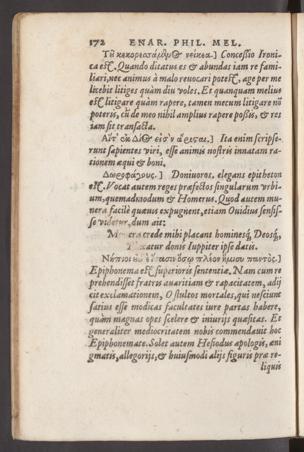 172 ENAR. PHIL. MEL.
Τοῦ κεκορεσσάμενος νείκεα.] Concessio Ironi-
ca est. Quando ditatus es & abundas iam re fami-
liari, nec animus à malo reuocari potest, age per me
licebit litiges quàm diu voles. Et quanquam melius
est litigare quàm rapere, tamen mecum litigare nō
poteris, cū de meo nihil amplius rapere possis, & res
iam sit transacta.
Αἵτ' ἐκ Διὸς εἰσὶν ἄρισται.] Ita enim scripse-
runt sapientes viri, esse animis nostris innatam ra-
tionem æqui & boni.
Δωροφάγους.] Doniuoros, elegans epitheton
est. Vocat autem reges præfectos singularum vrbi-
um, quemadmodum & Homerus. Quod autem mu-
nera facilè quæuis expugnent, etiam Ouidius sensis-
se videtur, dum ait:
crede mihi placant hominesq́, Deosq́,
donis Iuppiter ipse datis.
Νήπιοι οὐδ' ἴσασιν ὅσῳ πλέον ἥμισυ παντὸς.]
Epiphonema est superioris sententiæ. Nam cum re
prehendisset fratris auaritiam & rapacitatem, adij
cit exclamationem, O stultos mortales, qui nesciunt
satius esse modicas facultates iure partas habere,
quàm magnas opes scelere & iniurijs quæsitas. Et
generaliter mediocritatem nobis commendauit hoc
Epiphonemate. Solet autem Hesiodus apologis, æni
gmatis, allegorijs, & huiusmodi alijs figuris præ re-
liquis